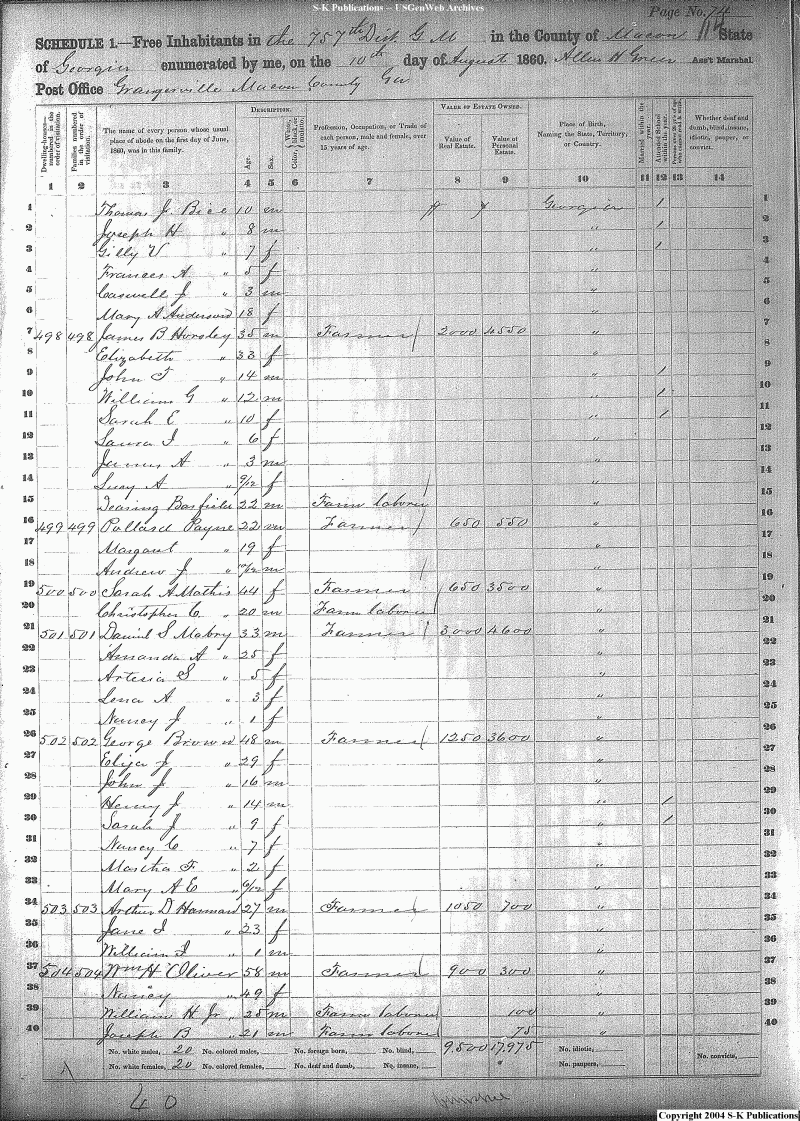 S-K Publications -- USGenWeb Archives
Page No. 74
SCHEDULE 1.—Free Inhabitants in the 757th Dist. G M in the County of Macon State
of Georgia enumerated by me, on the 10th day of August 1860. Allen H Green Ass't Marshal
Post Office Grangerville Macon County Ga
Dwelling-houses—numbered in the order of visitation.
Families numbered in the order of visitation.
The name of every person whose usual place of abode on the first day of June, 1860, was in this family.
DESCRIPTION.
Age.
Sex.
Color, White, black, or mulatto.
Profession, Occupation, or Trade of each person, male and female, over 15 years of age.
VALUE OF ESTATE OWNED.
Value of Real Estate.
Value of Personal Estate.
Place of Birth, Naming the State, Territory, or Country.
Married within the year.
Attended School within the year.
Persons over 20 y'rs of age who cannot read & write.
Whether deaf and dumb, blind, insane, idiotic, pauper, or convict.
1 2 3 4 5 6 7 8 9 10 11 12 13 14
1 Thomas J. Bice 10 m Georgia / 1
2 Joseph H " 8 m " / 2
3 Gilly V " 7 f " / 3
4 Frances A " 5 f " 4
5 Caswell J " 3 m " 5
6 Mary A Anderson 18 f " 6
7 498 498 James B Horsley 35 m Farmer 2000 4550 " 7
8 Elizabeth " 33 f " 8
9 John T " 14 m " / 9
10 William G " 12 m " / 10
11 Sarah E " 10 f " / 11
12 Laura I " 6 f " 12
13 James A " 3 m " 13
14 Lucy A " 9/12 f " 14
15 Dearing Barfield 22 m Farm laborer " 15
16 499 499 Pollard Payne 22 m Farmer 650 550 " 16
17 Margaret " 19 f " 17
18 Andrew J " m " 18
19 500 500 Sarah A Mathis 44 f Farmer 650 3500 " 19
20 Christopher C " 20 m Farm laborer " 20
21 501 501 Daniel S Mabry 33 m Farmer 3000 4600 " 21
22 Amanda A " 25 f " 22
23 Artesia S " 5 f " 23
24 Lena A " 3 f " 24
25 Nancy J " 1 f " 25
26 502 502 George Brown 48 m Farmer 1250 3600 " 26
27 Eliza J " 29 f " 27
28 John J " 16 m " 28
29 Henry J " 14 m " / 29
30 Sarah J " 9 f " / 30
31 Nancy C " 7 f " 31
32 Martha F " 2 f " 32
33 Mary A E " 6/12 f " 33
34 503 503 Arthur D Hannard 27 m Farmer 1050 700 " 34
35 Jane I " 23 f " 35
36 William I " 1 m " 36
37 504 504 Wm H Oliver 58 m Farmer 900 300 " 37
38 Nancy " 49 f " 38
39 William H Jr " 25 m Farm laborer 100 " 39
40 Joseph B " 21 m Farm laborer 75 " 40
No. white males, 20 No. colored males, No. foreign born, No. blind, 9,500 17,975 No. idiotic, No. convicts,
No. white females, 20 No. colored females, No. deaf and dumb, No. insane, No. paupers,
40
Copyright 2004 S-K Publications